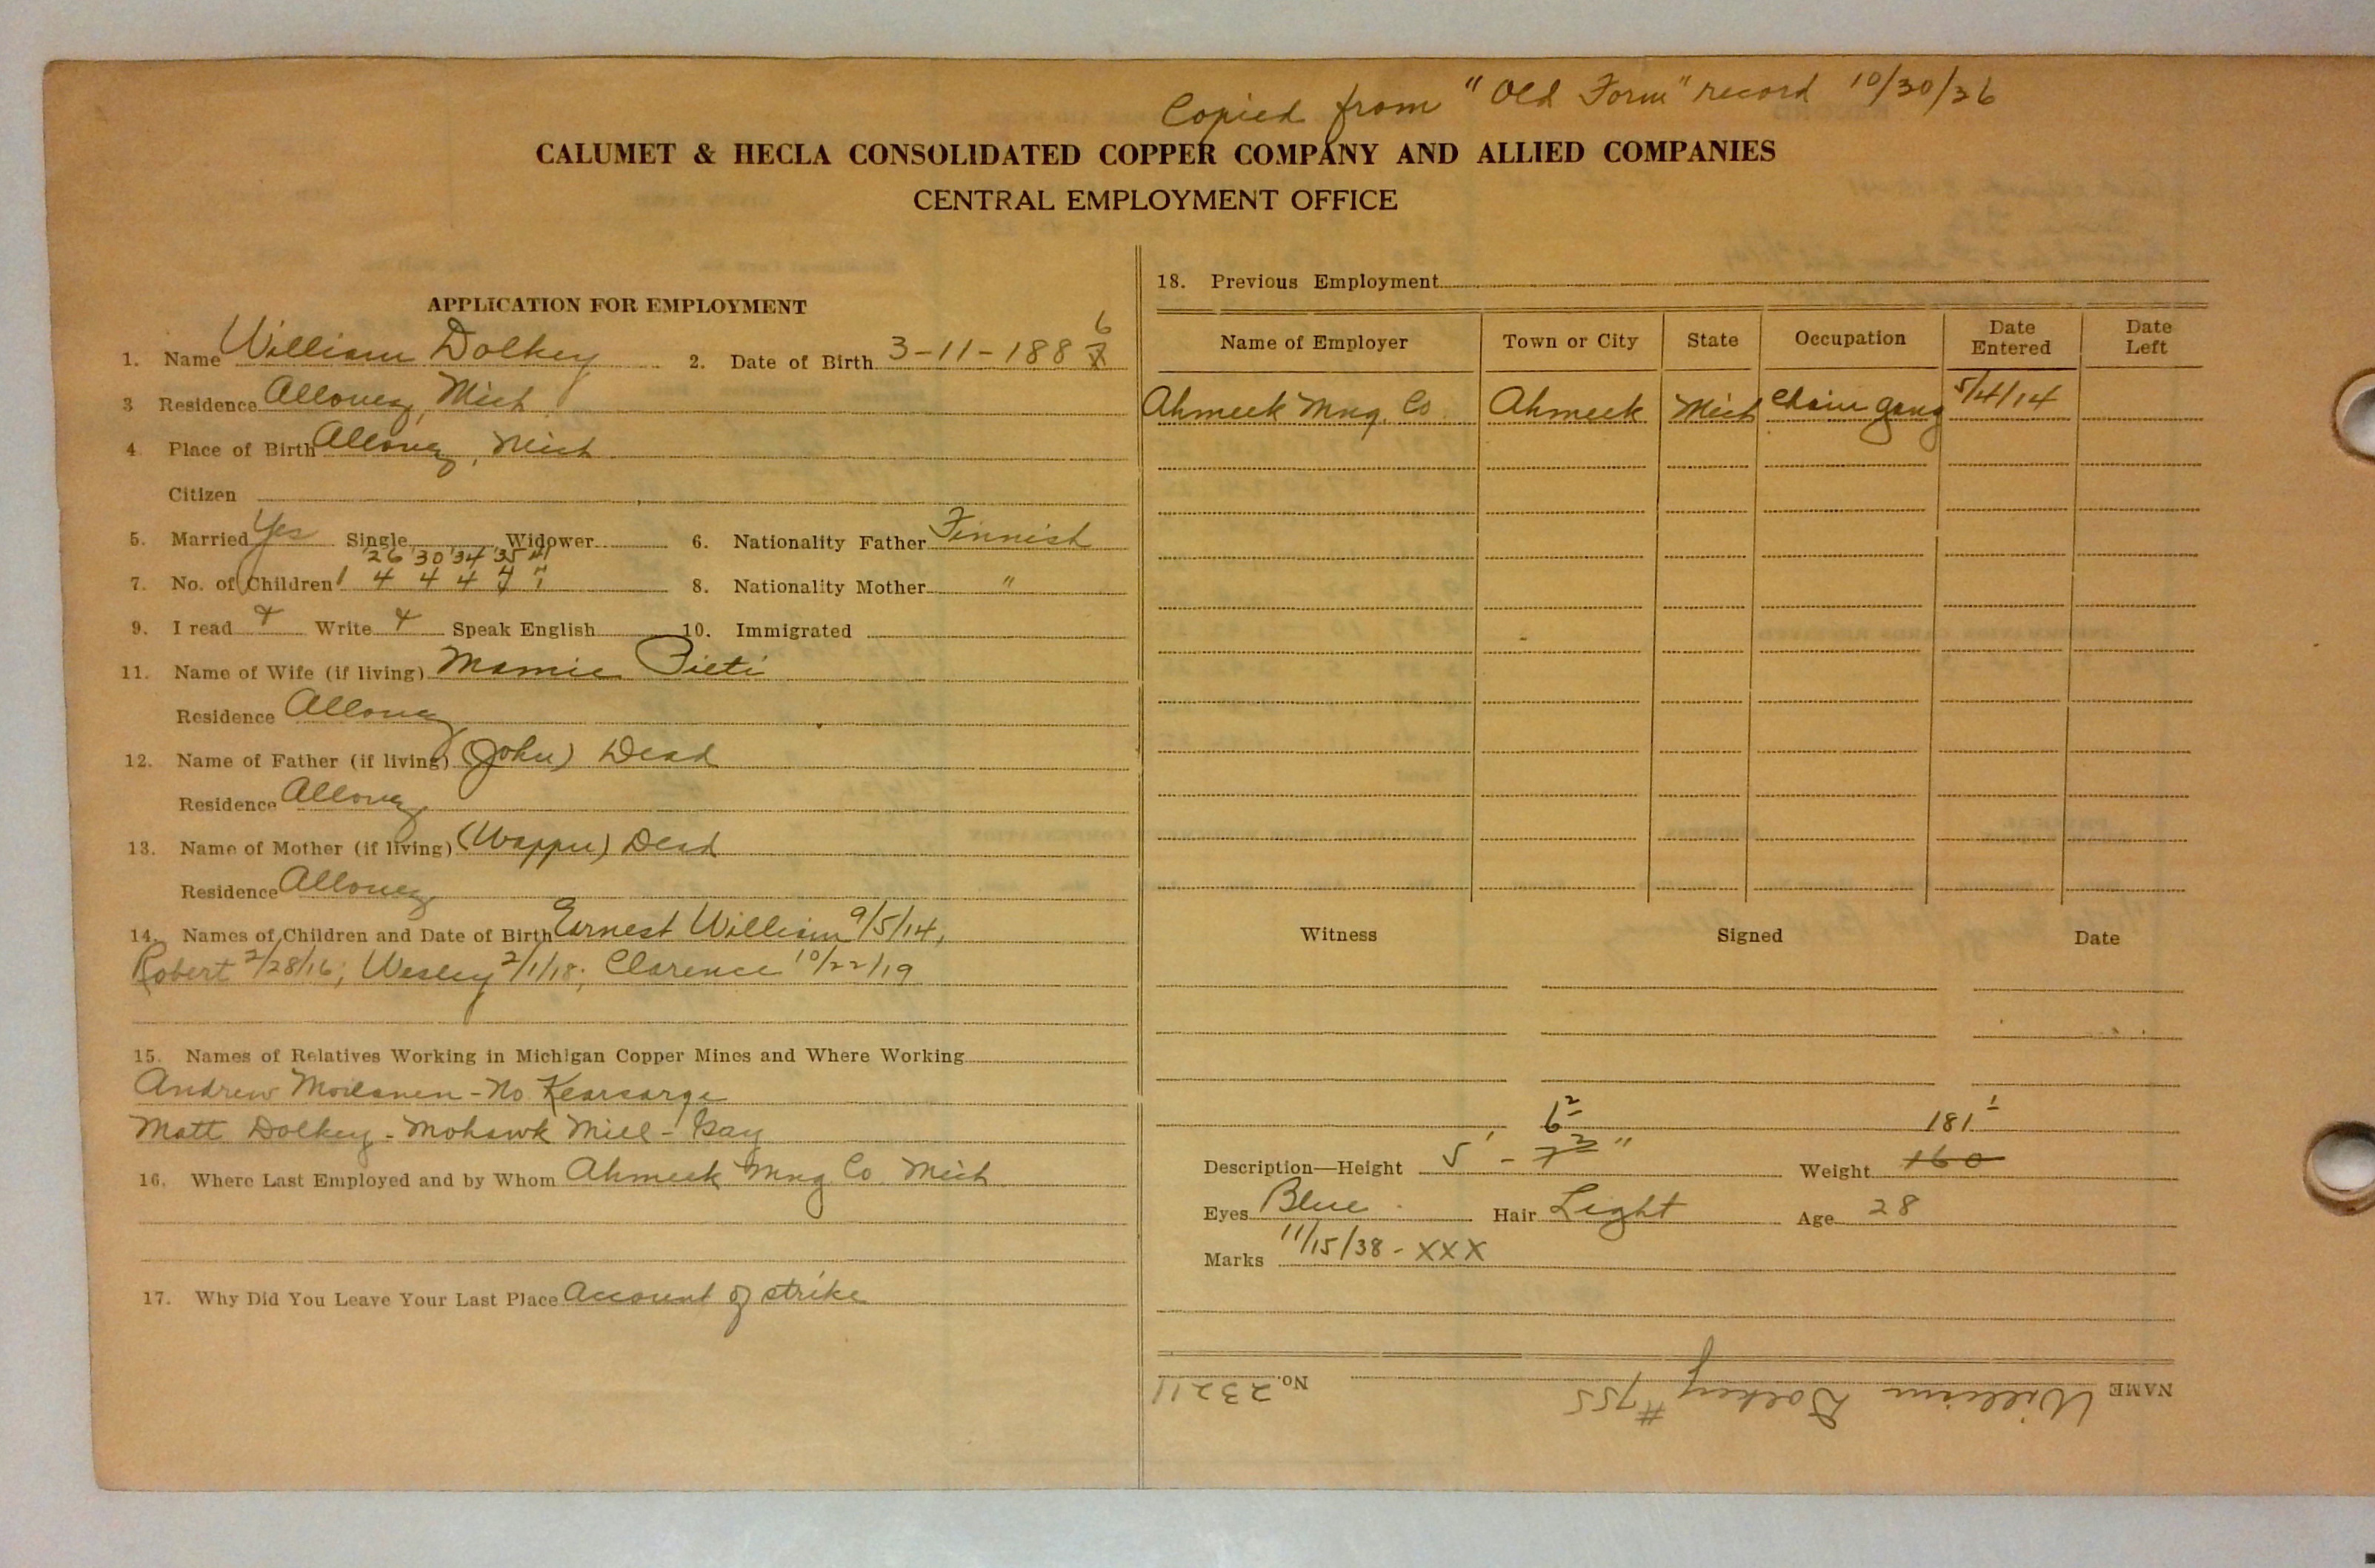 Copied from "Old Form" record 10/30/36
CALUMET & HECLA CONSOLIDATED COPPER COMPANY AND ALLIED COMPANIES
CENTRAL EMPLOYMENT OFFICE
APPLICATION FOR EMPLOYMENT
1. Name William Dolkey 2. Date of Birth 3-11-1887 6
3 Residence Allouez, Mich
4 Place of Birth Allouez, Mich
Citizen
5. Married Yes Single Widower 6. Nationality Father Finnish
'26 '30 '34 '35 '41
7. No. of Children 1 4 4 4 4 8. Nationality Mother "
9. I read Write Speak English 10. Immigrated
11. Name of Wife (if living) Mamie Pieti
Residence Allouez
12. Name of Father (if living) (John) Dead
Residence Allouez
13. Name of Mother (if living) (Wappu) Dead
Residence Allouez
14. Names of Children and Date of Birth Earnest William 9/5/14,
Robert 2/28/16; Wesley 2/1/18; Clarence 10/22/19
15. Names of Relatives Working in Michigan Copper Mines and Where Working
Andrew Moilanen - No. Kearsarge
Matt Dolkey - Mohawk Mill - Gay
16. Where Last Employed and by Whom Ahmeek Mng Co. Mich
17. Why Did You Leave Your Last Place Account of strike
18. Previous Employment
Name of Employer Town or City State Occupation Date Entered Date Left
Ahmeek Mng. Co. Ahmeek Mich Chain gang 5/4/14
Witness Signed Date
6 2 181 1
Description—Height 5' - 7 2" Weight 160
Eyes Blue Hair Light Age 28
Marks 11/15/38 - XXX
NAME William Dolkey #755 No. 23211